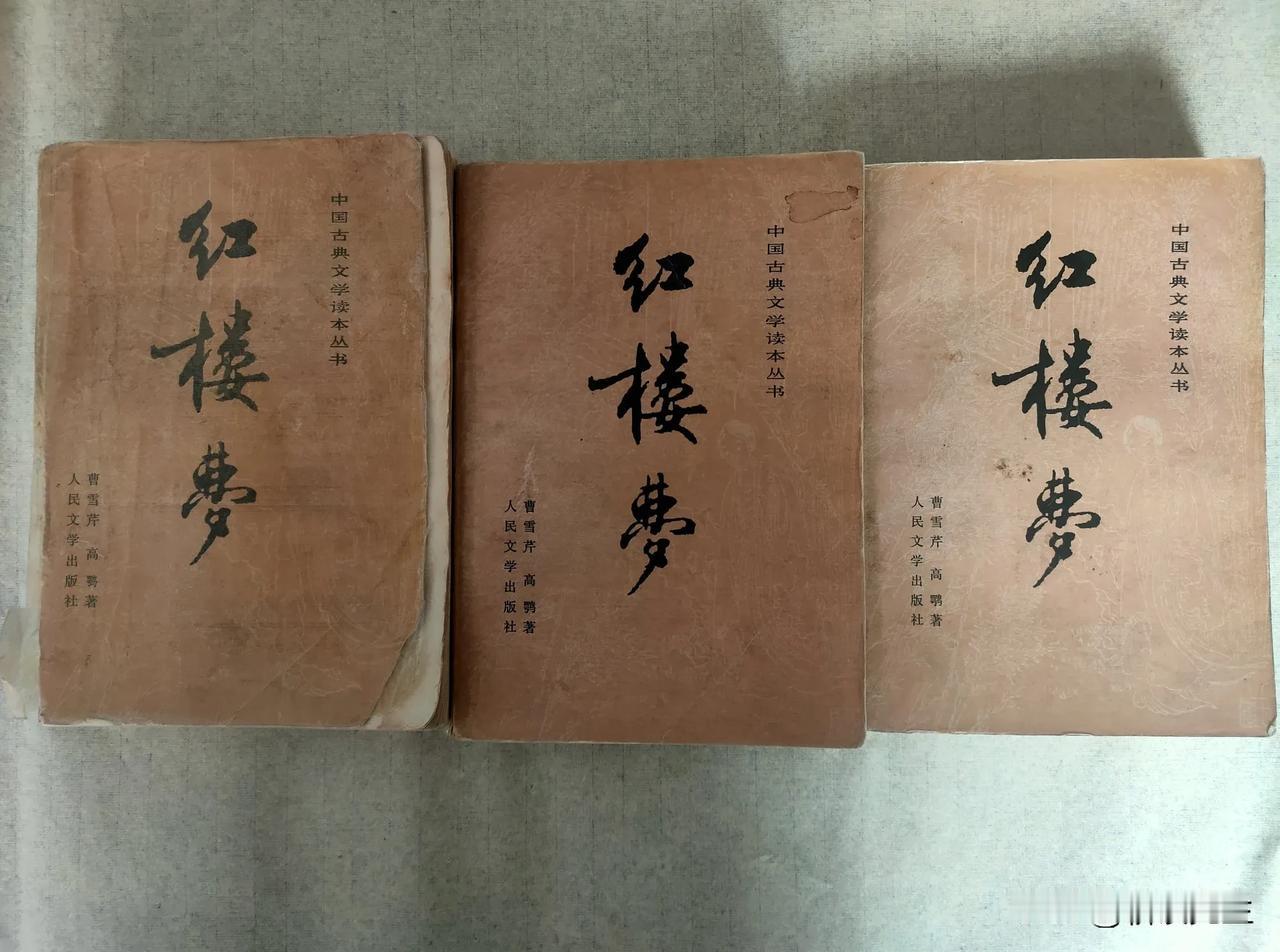 中国古典文学读本丛书
红楼梦
曹雪芹 高鹗著
人民文学出版社
中国古典文学读本丛书
红楼梦
曹雪芹 高鹗著
人民文学出版社
中国古典文学读本丛书
红楼梦
曹雪芹 高鹗著
人民文学出版社